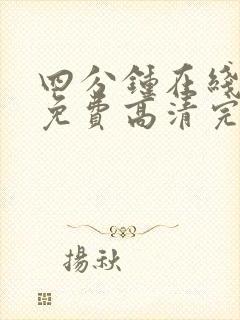 四分鍾在綫
免費高清完
揚秋